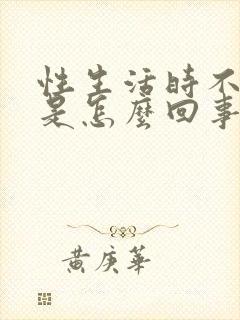 性生活時不
是怎麼回事
黃庚華